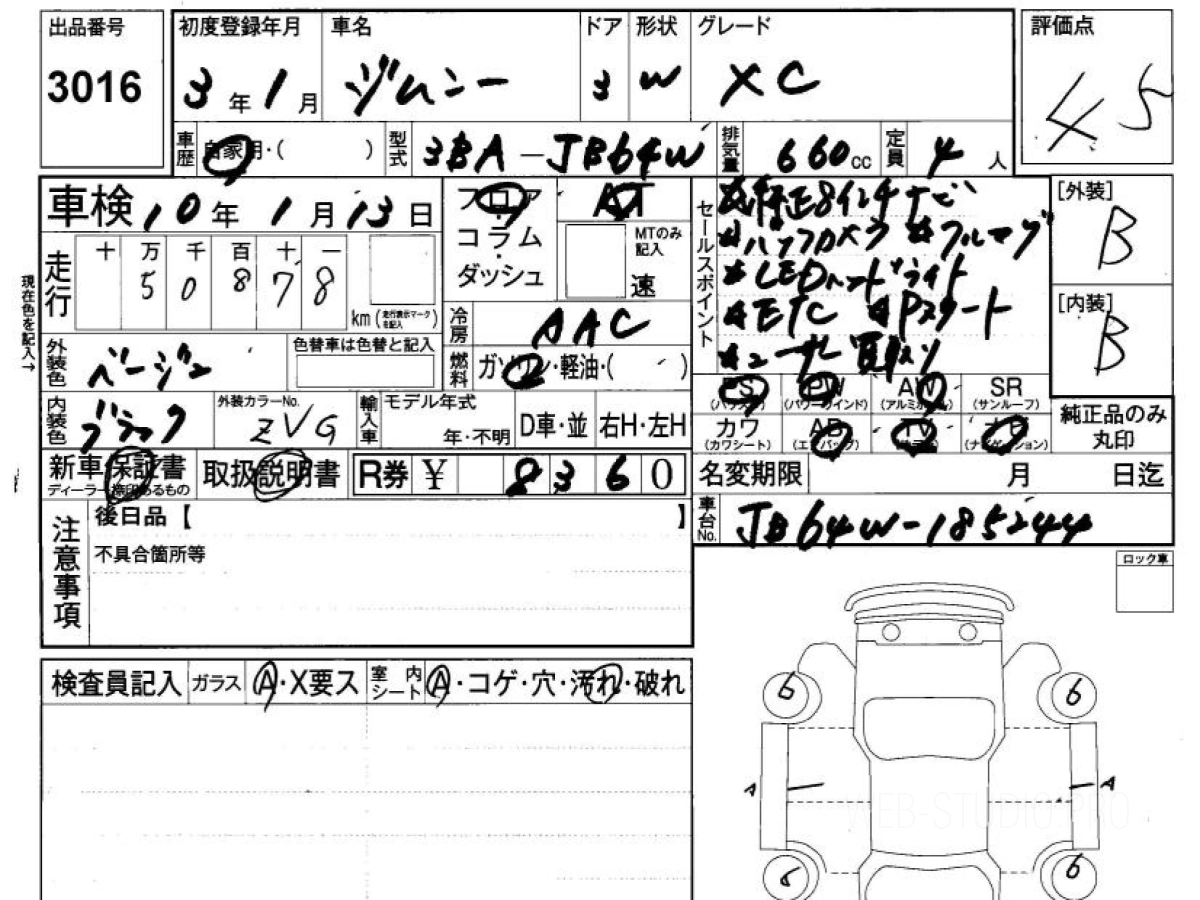 出品番号
3016
初度登録年月
3年1月
車名
ジムニー
ドア
3
形状
W
グレード
XC
評価点
4.5
車歴
自家用・( )
型式
3BA-JB64W
排気量
660cc
定員
4人
車検 10年1月13日
フロア
コラム
ダッシュ
AT
MTのみ記入
速
セールスポイント
☆純正8インチナビ
☆バックカメラ ☆フルセグ
☆LEDヘッドライト
☆ETC ☆Pスタート
[外装]
B
[内装]
B
現在色を記入→
走行
十 万 千 百 十 一
5 0 8 7 8
km (走行表示マークを記入)
冷房
AAC
外装色
ベージュ
色替車は色替と記入
燃料
ガソリン・軽油・( )
内装色
ブラック
外装カラーNo.
ZVG
輸入車
モデル年式
年・不明
D車・並
右H・左H
PS
(パワステ)
PW
(パワーウインド)
AW
(アルミホイール)
SR
(サンルーフ)
カワ
(カワシート)
AB
(エアバッグ)
TV
ナビ
(ナビゲーション)
純正品のみ
丸印
新車保証書
ディーラー捺印あるもの
取扱説明書
R券 ¥ 8360
名変期限 月 日迄
車台No.
JB64W-185244
注意事項
後日品【 】
不具合箇所等
ロック車
検査員記入
ガラス
A・X要ス
室内シート
A・コゲ・穴・汚れ・破れ
6 6
A A
6 6
WEB-STUDIO.PRO